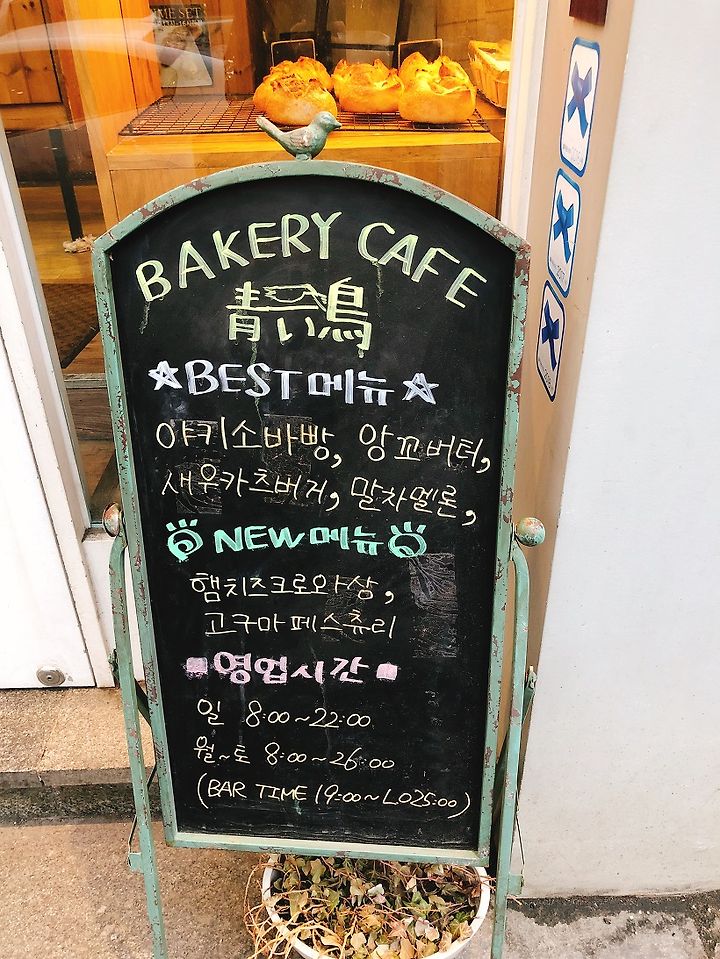 BAKERY CAFE
青い鳥
BEST 메뉴
야키소바빵, 앙꼬버터,
새우카츠버거, 말차멜론,
NEW 메뉴
햄치즈크로와상,
고구마 페스츄리
영업시간
일 8:00~22:00
월~토 8:00~26:00
(BAR TIME 19:00~LO25:00)